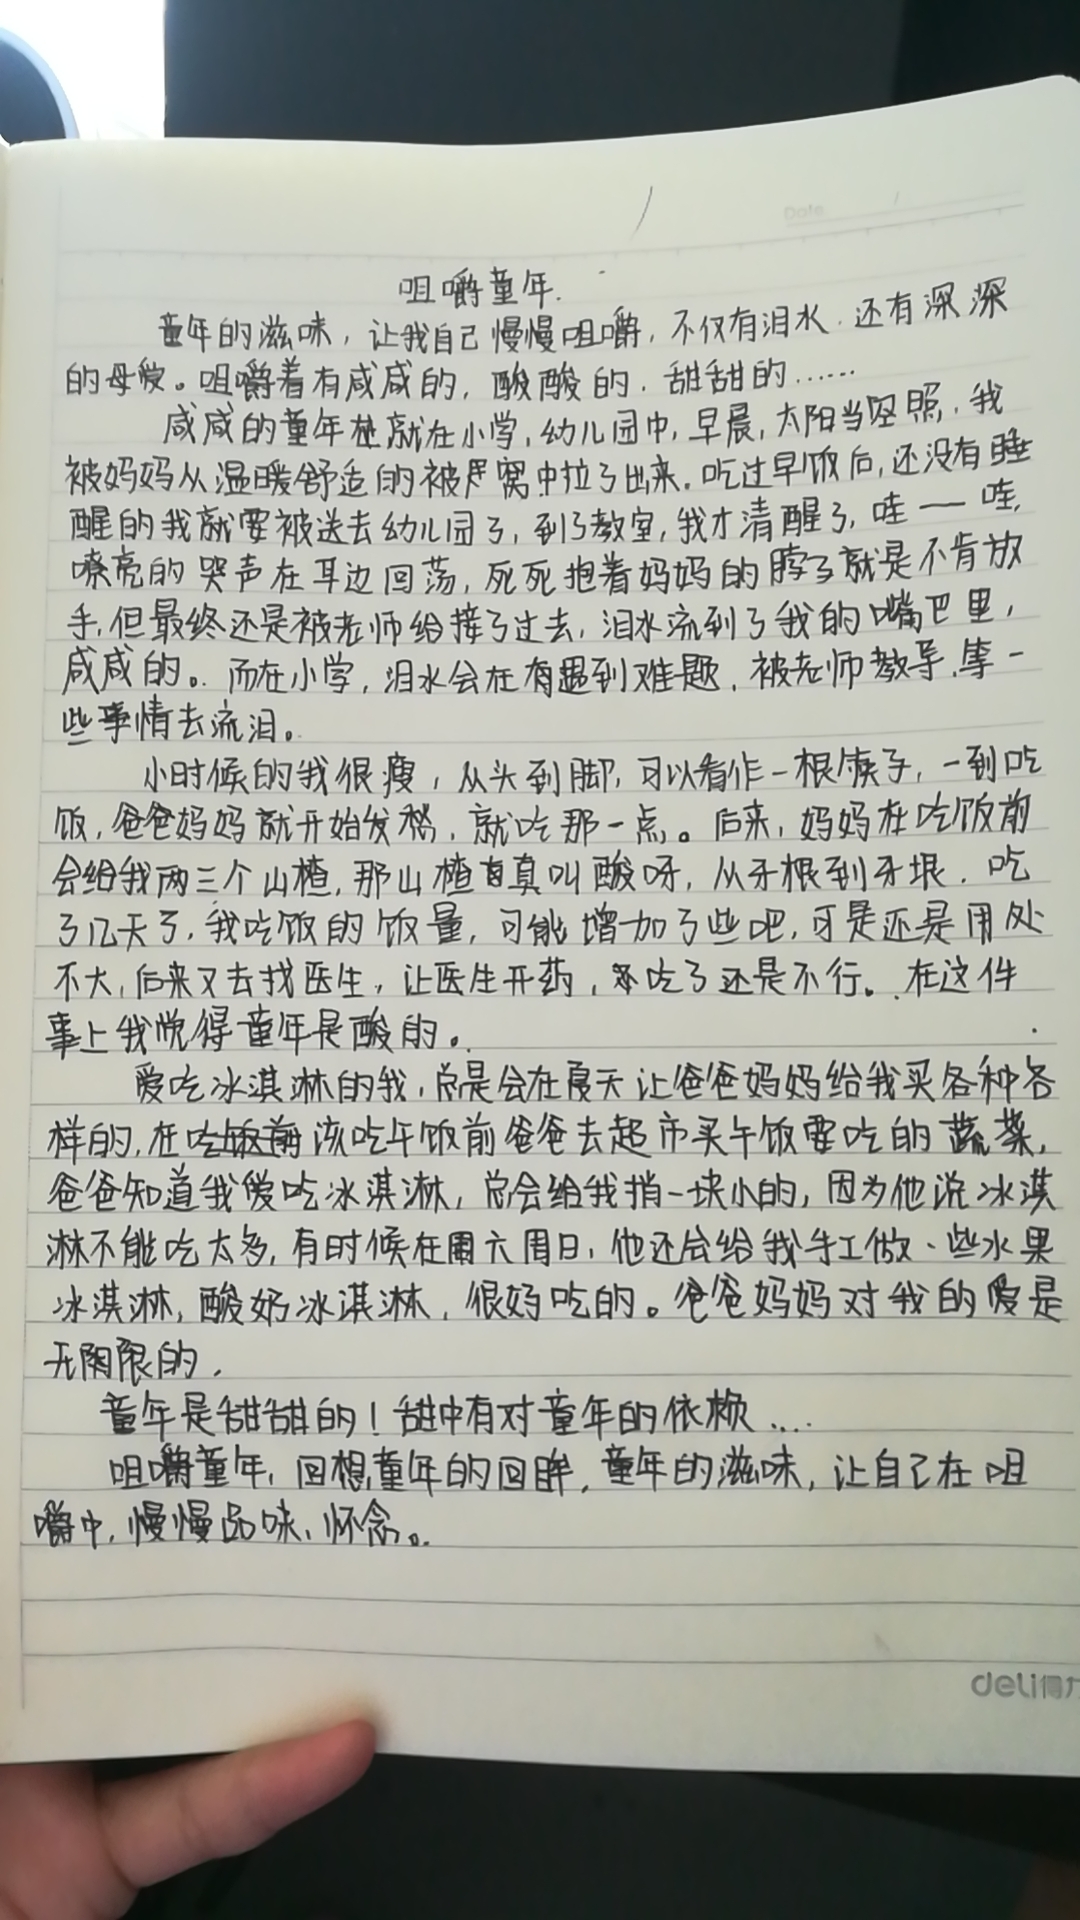 Date
咀嚼童年.
童年的滋味，让我自己慢慢咀嚼，不仅有泪水.还有深深
的母爱。咀嚼着有咸咸的，酸酸的.甜甜的……
咸咸的童年就在小学，幼儿园中，早晨，太阳当空照，我
被妈妈从温暖舒适的被窝中拉了出来.吃过早饭后，还没有睡
醒的我就要被送去幼儿园了，到了教室，我才清醒了，哇——哇，
嘹亮的哭声在耳边回荡，死死抱着妈妈的脖子就是不肯放
手，但最终还是被老师给接了过去，泪水流到了我的嘴巴里，
咸咸的。而在小学，泪水会在有遇到难题、被老师教导、等一
些事情去流泪。
小时候的我很瘦，从头到脚，可以看作一根筷子，一到吃
饭，爸爸妈妈就开始发愁，就吃那一点。后来，妈妈在吃饭前
会给我两三个山楂，那山楂真叫酸呀，从牙根到牙垠.吃
了几天了，我吃饭的饭量，可能增加了些吧，可是还是用处
不大，后来又去找医生，让医生开药，吃了还是不行。在这件
事上我觉得童年是酸的。
爱吃冰淇淋的我，总是会在夏天让爸爸妈妈给我买各种各
样的，在该吃午饭前爸爸去超市买午饭要吃的蔬菜，
爸爸知道我爱吃冰淇淋，总会给我捎一块小的，因为他说冰淇
淋不能吃太多，有时候在周六周日，他还会给我手工做一些水果
冰淇淋，酸奶冰淇淋，很好吃的。爸爸妈妈对我的爱是
无限的.
童年是甜甜的！甜中有对童年的依赖…
咀嚼童年，回想童年的回眸，童年的滋味，让自己在咀
嚼中，慢慢品味、怀念。
deli得力